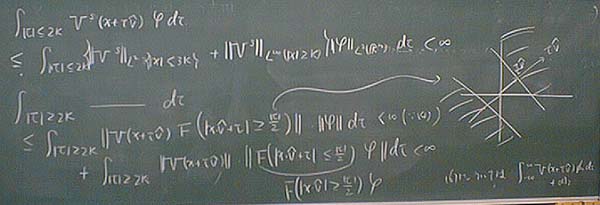 ∫_{|τ|≤2K} V^s(x+τv̂) φ dτ
≤ ∫_{|τ|≤2K} {‖V^s‖_{L²(|x|≤3K)} + ‖V^s‖_{L^∞(|x|≥K)}} ‖φ‖_{L²(R^n)} dτ < ∞
∫_{|τ|≥2K} ——— dτ
≤ ∫_{|τ|≥2K} ‖V(x+τv̂) F(|x·v̂+τ| ≥ |τ|/2)‖ · ‖φ‖ dτ < ∞
+ ∫_{|τ|≥2K} ‖V(x+τv̂)‖ ‖F(|x·v̂+τ| ≤ |τ|/2) φ‖ dτ < ∞
F(|x·v̂| ≥ |τ|/2) φ
τv̂
∫_{-∞}^{∞} V(x+τv̂) φ dτ